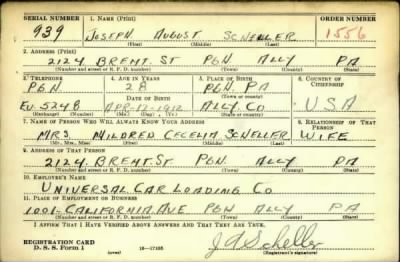 SERIAL NUMBER 1. NAME (Print) ORDER NUMBER
939 JOSEPH AUGUST SCHELLER 1556
(First) (Middle) (Last)
2. ADDRESS (Print)
2124 BREMT. ST PGH ALLY PA
(Number and street or R. F. D. number) (Town) (County) (State)
3. TELEPHONE 4. AGE IN YEARS 5. PLACE OF BIRTH 6. COUNTRY OF CITIZENSHIP
PGH. 28 PGH. PA
DATE OF BIRTH (Town or county)
EV-5248 APR-12-1912 ALLY. CO USA
(Exchange) (Number) (Mo.) (Day) (Yr.) (State or country)
7. NAME OF PERSON WHO WILL ALWAYS KNOW YOUR ADDRESS 8. RELATIONSHIP OF THAT PERSON
MRS. MILDRED CECELIA SCHELLER WIFE
(Mr., Mrs., Miss) (First) (Middle) (Last)
9. ADDRESS OF THAT PERSON
2124. BREMT. ST. PGH. ALLY PA
(Number and street or R. F. D. number) (Town) (County) (State)
10. EMPLOYER'S NAME
UNIVERSAL CAR LOADING CO
11. PLACE OF EMPLOYMENT OR BUSINESS
1001-CALIFORNIA AVE PGH ALLY PA
(Number and street or R. F. D. number) (Town) (County) (State)
I AFFIRM THAT I HAVE VERIFIED ABOVE ANSWERS AND THAT THEY ARE TRUE.
REGISTRATION CARD
D. S. S. Form 1 (over) 16—17105 J A Scheller
(Registrant's signature)